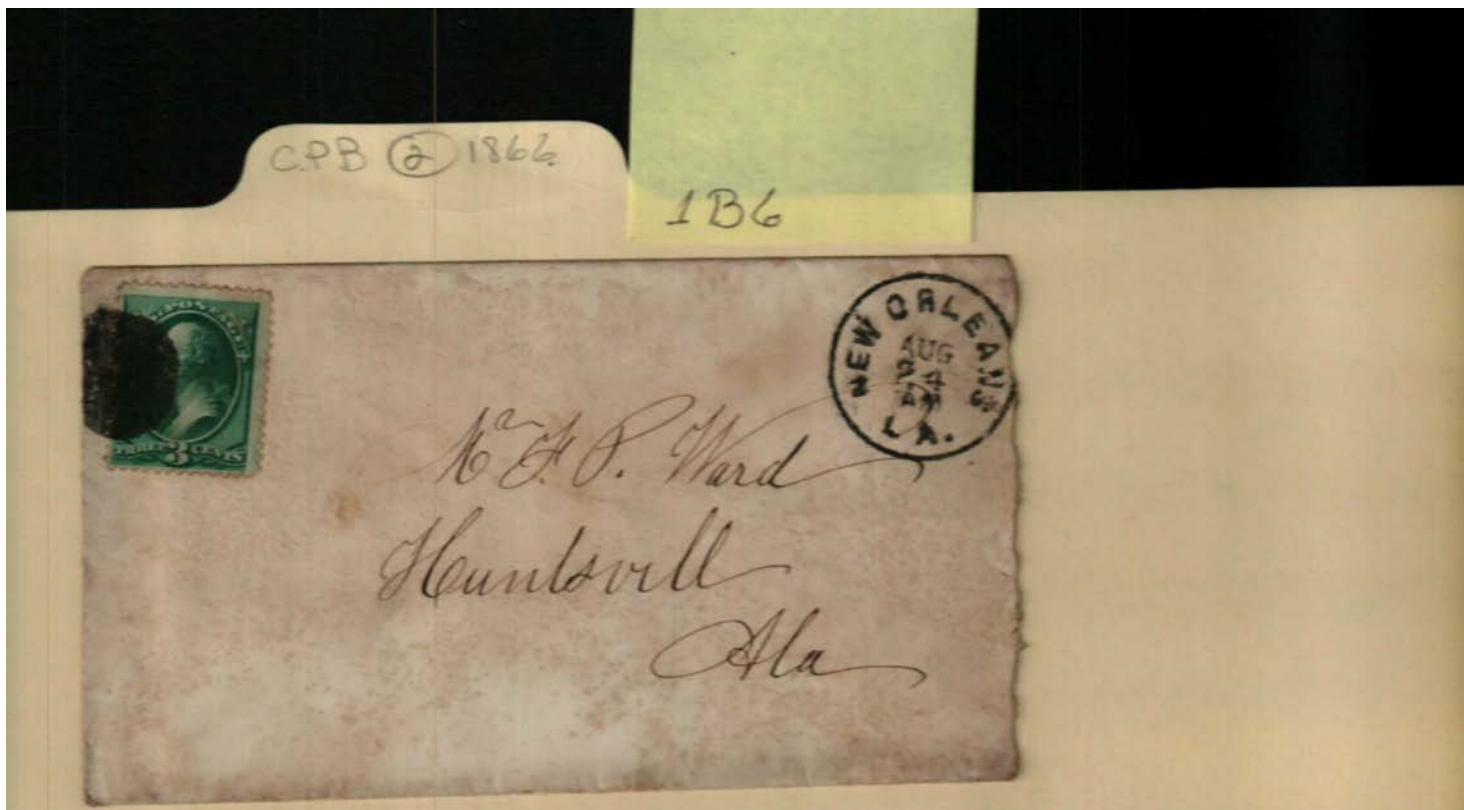 C.P.B ② 1866
1B6
POSTAGE
THREE 3 CENTS
NEW ORLEANS
AUG
24
LA.
Mr F. P. Ward
Huntsvill
Ala